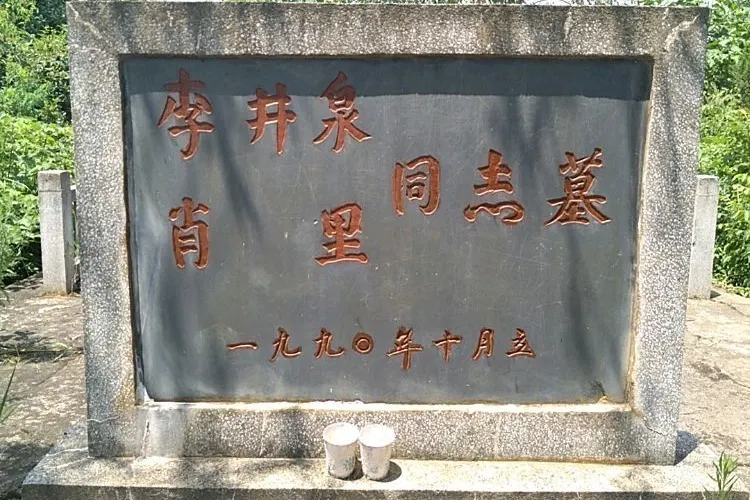 李井泉
肖里
同志墓
一九九〇年十月立